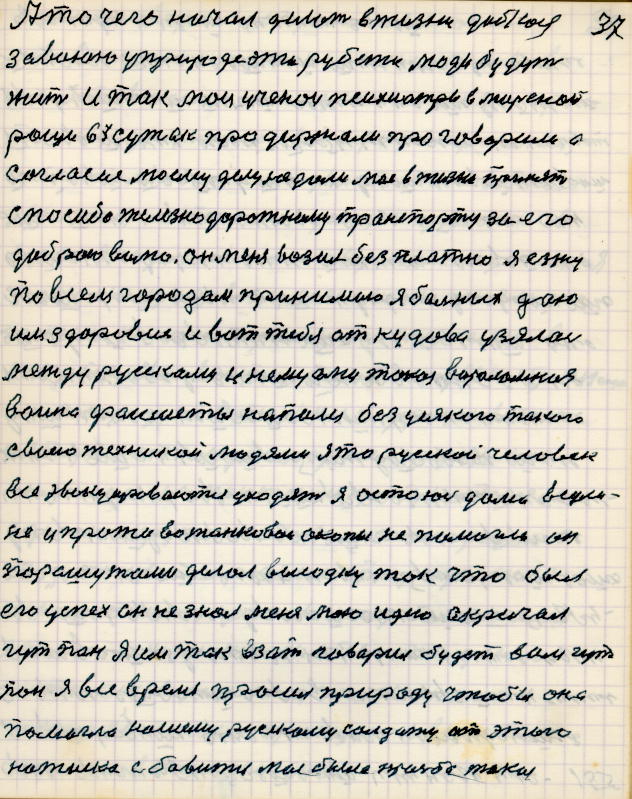 А то чего начал делат в жизни добьюя 37
заваюю у природе эти рубежи люди будут
жит И так мои ученои психиатри в марсной
рощи 67 суток продержали проговорили а
согласие моему делу не дали мое в жизни принят
спосибо железнодорожному транспорту за его
доброю волю. он меня возил безплатно я езжу
по всем городам принимаю я больних даю
им здоровия и вот тебя откудова узялас
между рускими и немцами такая вароломная
воина фашисты напали без усякого такого
своею техникой людями я то русской человек
все эвакуироваются уходят я остоюс дома в сели-
не и противотанковои окопы не помогли он
парашутами делал высодку так что был
его успех он не знал меня мою идею а кричал
гут пан Я им так взат говорил будет вам гут
пан я все время просил природу чтобы она
помогла нашему рускому солдату от этого
натиска сбавити мое была прозба такая